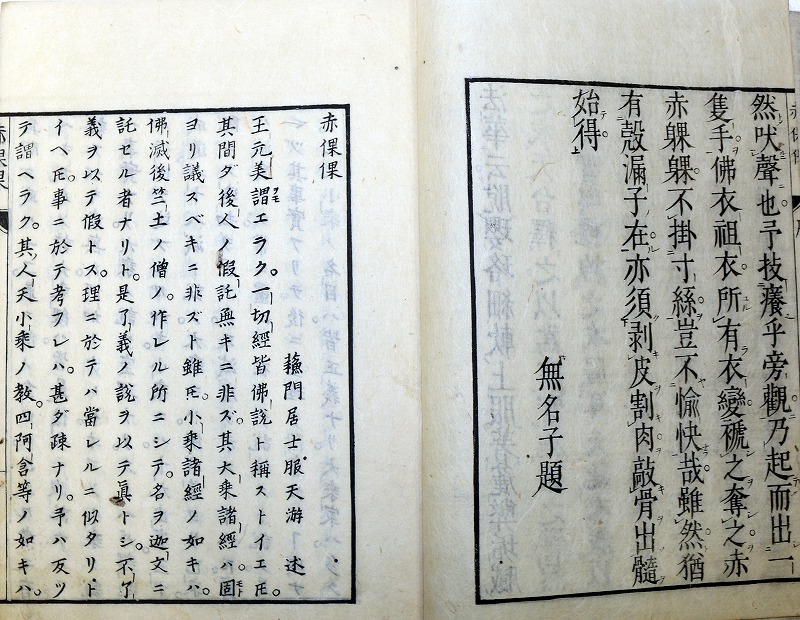 然吠聲也予技癢乎旁觀乃起而出一
隻手佛衣祖衣所有衣變褫之奪之赤
赤躶躶不掛寸絲豈不愉快哉雖然猶
有殼漏子在亦須剥皮割肉敲骨出髓
始得
無名子題
赤倮倮
蘓門居士服天游述
王元美謂エラク一切經皆佛說ト稱ストイエ𪜈
其間ダ後人ノ假託無キニ非ズ其大乘諸經ハ固
ヨリ議スベキニ非ズト雖𪜈小乘諸經ノ如キハ
佛滅後竺土ノ僧ノ作レル所ニシテ名ヲ迦文ニ
託セル者ナリト是了義ノ說ヲ以テ眞トシ不了
義ヲ以テ假トス理ニ於テハ當レルニ似タリト
イヘ𪜈事ニ於テ考フレハ甚ダ疎ナリ予ハ反ツ
テ謂ヘラク其人天小乘ノ教四阿含等ノ如キハ